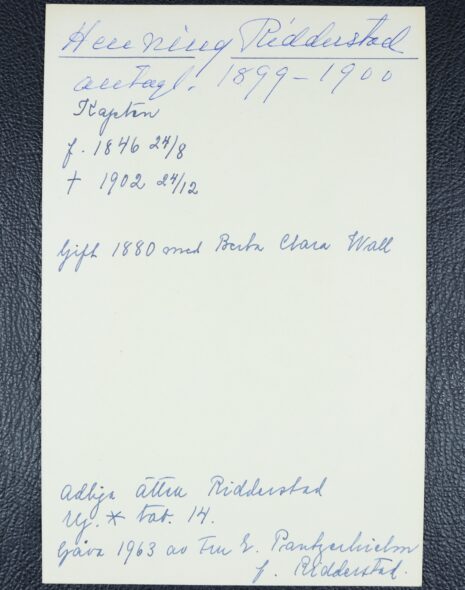 Henning Ridderstad
antagl. 1899-1900
Kapten
f. 1846 24/8
† 1902 24/12
Gift 1880 med Berta Clara Wall
Adliga ätten Ridderstad
* tab. 14.
Gåva 1963 av Fru E. Pantzerhielm
f. Ridderstad.